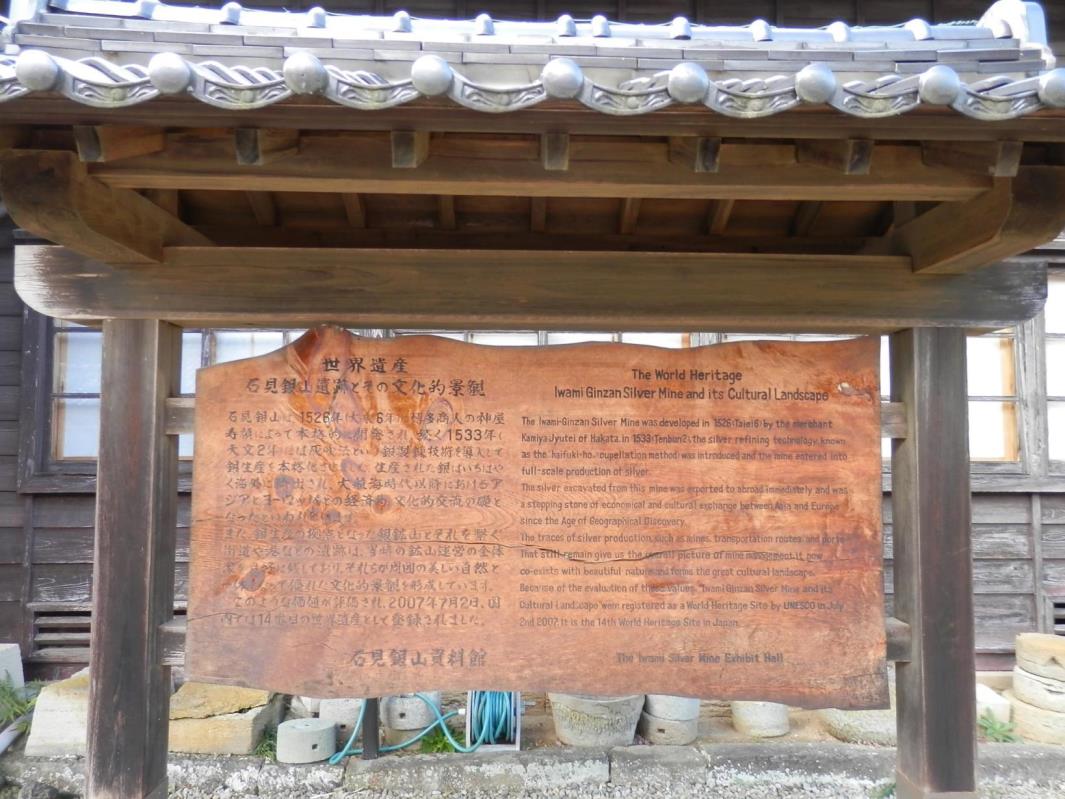 世界遺産
石見銀山遺跡とその文化的景観
石見銀山は、1526年(大永6年)に博多商人の神屋
寿禎によって本格的に開発され、続く1533年(
天文2年)には灰吹法という銀製錬技術を導入して
銀生産を本格化させました。生産された銀はいちはや
く海外に輸出され、大航海時代以降におけるア
ジアとヨーロッパとの経済的・文化的交流の礎と
なったといわれています。
また、銀生産の拠点となった銀鉱山とそれを繋ぐ
街道や港などの遺跡は、当時の鉱山運営の全体
像を良好に残しており、それらが周囲の美しい自然と
あいまって優れた文化的景観を形成しています。
このような価値が評価され、2007年7月2日、国
内では14番目の世界遺産として登録されました。
石見銀山資料館
The World Heritage
Iwami Ginzan Silver Mine and its Cultural Landscape
The Iwami-Ginzan Silver Mine was developed in 1526(Taiei6) by the merchant
Kamiya Jyutei of Hakata. in 1533(Tenbun2), the silver refining technology, known
as the 'haifuki-ho, (cupellation method) was introduced and the mine entered into
full-scale production of silver.
The silver excavated from this mine was exported to abroad immediately and was
a stepping stone of economical and cultural exchange between Asia and Europe
since the Age of Geographical Discovery.
The traces of silver production, such as mines, transportation routes, and ports
that still remain give us the overall picture of mine management. it now
co-exists with beautiful nature and forms the great cultural landscape.
Because of the evaluation of these values, "Iwami Ginzan Silver Mine and its
Cultural Landscape" were registered as a World Heritage Site by UNESCO in July
2nd 2007. It is the 14th World Heritage Site in Japan.
The Iwami Silver Mine Exhibit Hall